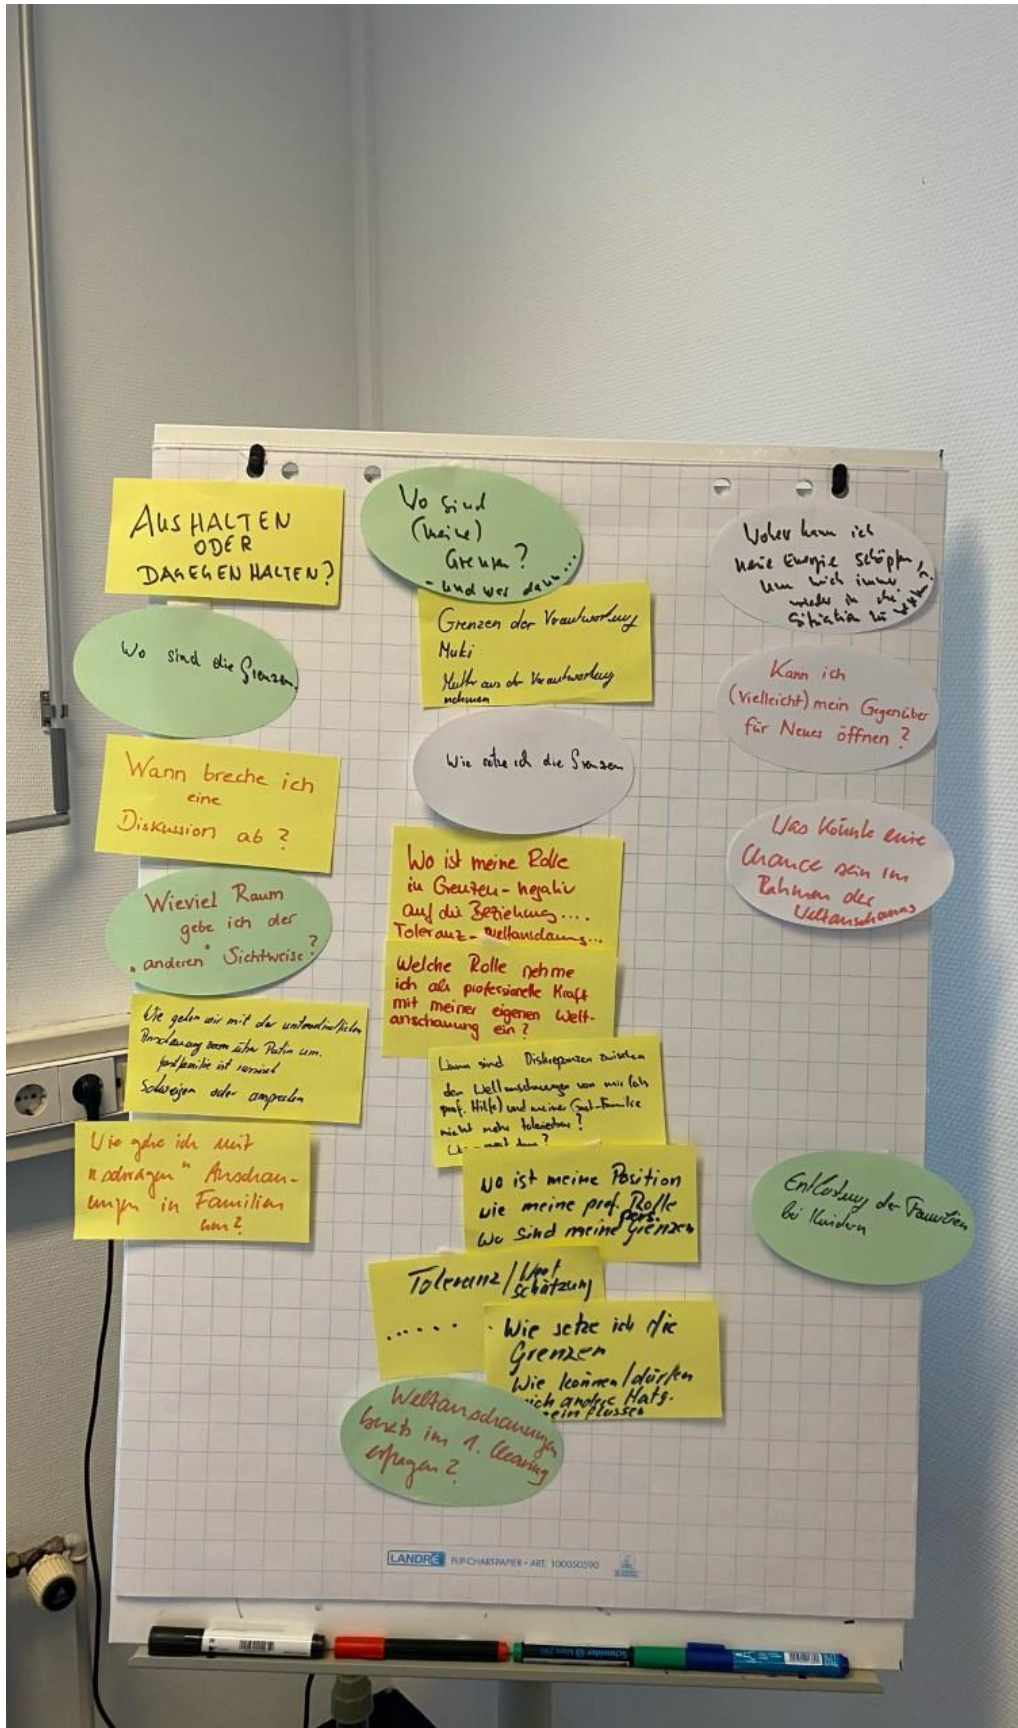 AUSHALTEN
ODER
DAGEGENHALTEN?
Wo sind die Grenzen
Wann breche ich
eine
Diskussion ab?
Wieviel Raum
gebe ich der
"anderen" Sichtweise?
Wie gehen wir mit der unterschiedlichen
Anschauung zum über Putin um.
Gastfamilie ist russisch
Schweigen oder ansprechen
Wie gehe ich mit
"schrägen" Anschau-
ungen in Familien
um?
Wo sind
(meine)
Grenzen?
- und was dann...
Grenzen der Verantwortung
Muki
Mutter aus der Verantwortung
nehmen
Wie setze ich die Grenzen
Wo ist meine Rolle
in Grenzen - negativ
auf die Beziehung....
Toleranz - Weltanschauung...
Welche Rolle nehme
ich als professionelle Kraft
mit meiner eigenen Welt-
anschauung ein?
Wann sind Diskrepanzen zwischen
den Weltanschauungen von mir (als
prof. Hilfe) und meiner Gast-Familie
nicht mehr tolerierbar?
Wo ist meine Position
wie meine prof. Rolle
Wo sind meine pers. Grenzen
Toleranz / Wert
schätzung
.....
Wie setze ich die
Grenzen
Wie können / dürfen
mich andere
beeinflussen
Weltanschauungen
bereits im 1. Clearing
erfragen?
Woher kann ich
meine Energie schöpfen,
um mich immer
wieder in die
Situation zu
Kann ich
(vielleicht) mein Gegenüber
für Neues öffnen?
Was könnte eine
Chance sein im
Rahmen der
Weltanschauung
Entlastung der Familien
bei Kindern
LANDRÉ FLIP-CHART-PAPIER • ART. 100050590
Schneider